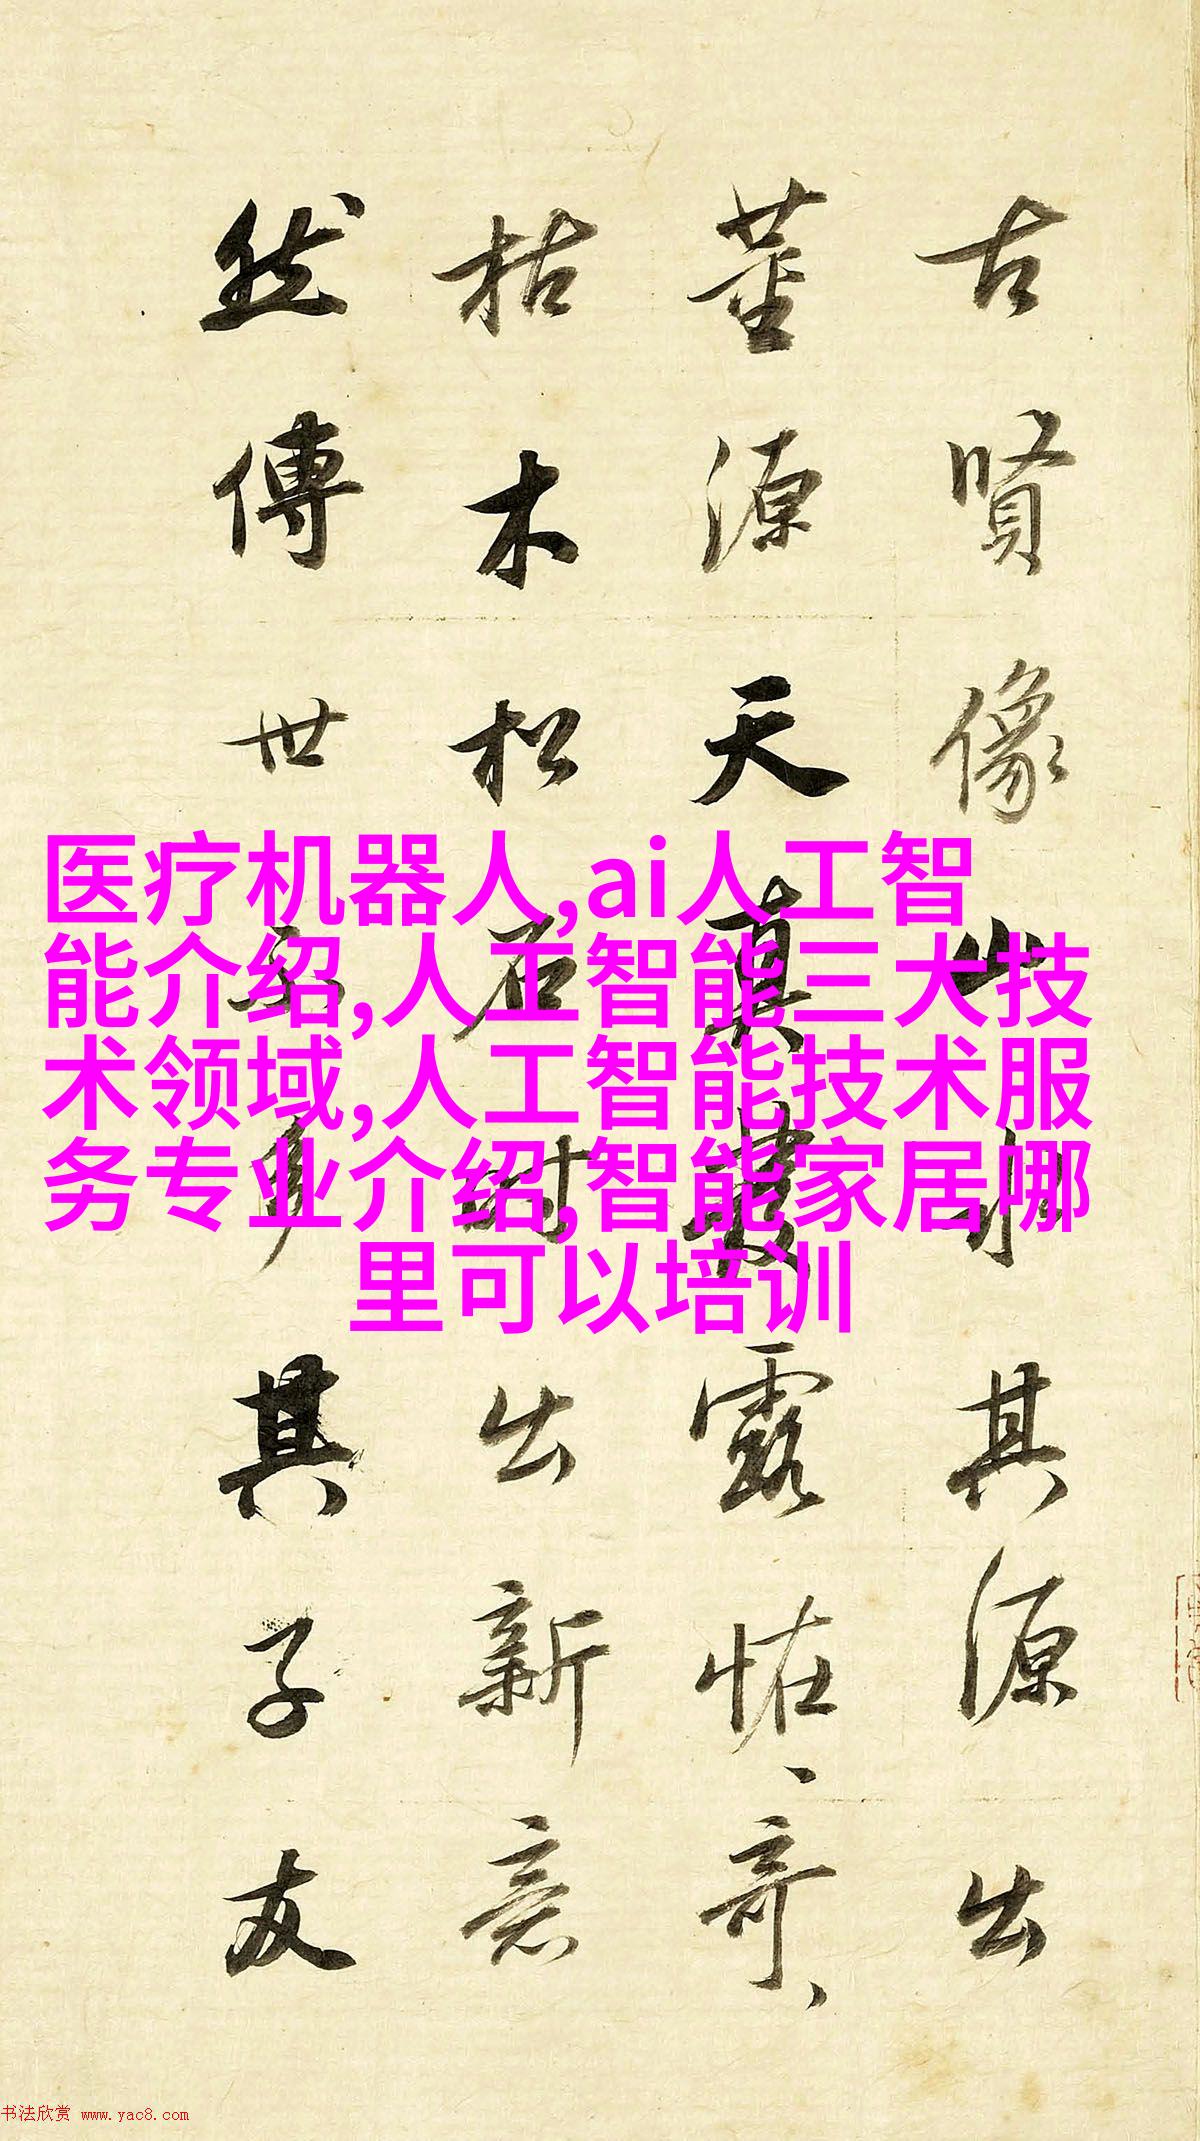 古賢像山水其源出
董源天真叢露恠奇
枯木松石時出新意
然傳世不多其子友
医疗机器人,ai人工智
能介绍,人工智能三大技
术领域,人工智能技术服
务专业介绍,智能家居哪
里可以培训
书法欣赏 www.yac8.com